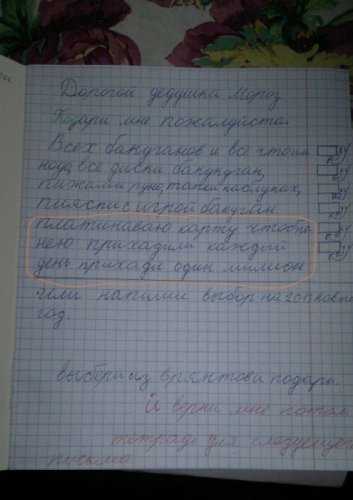 Дорогой дедушка Мороз
Подари мне пожалуйста.
Всех бакуганов и всё что им
надо, все диски бакуган,
пижамы руно, тапки
игрой бакуган
платинаваю карту чтоб на
нею приходили каждый
день приходи один милион
или напиши выбор на 2013 новый
год.
выбери из вряктов и подари.
И верни мне потом
тетрадь для следующего
письма